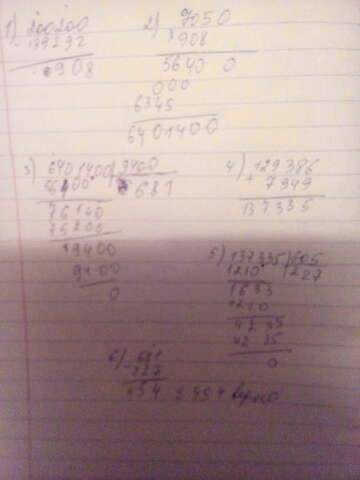 1) 200200
- 199292
908
2) 7050
× 908
5640 0
000
6345
6401400
3) 6401400 9400
56400 681
76140
75200
9400
9400
0
4) 129386
+ 7949
137335
5) 137335 605
1210 227
1633
1210
4235
4235
0
6) 681
- 227
454 = 454 верно